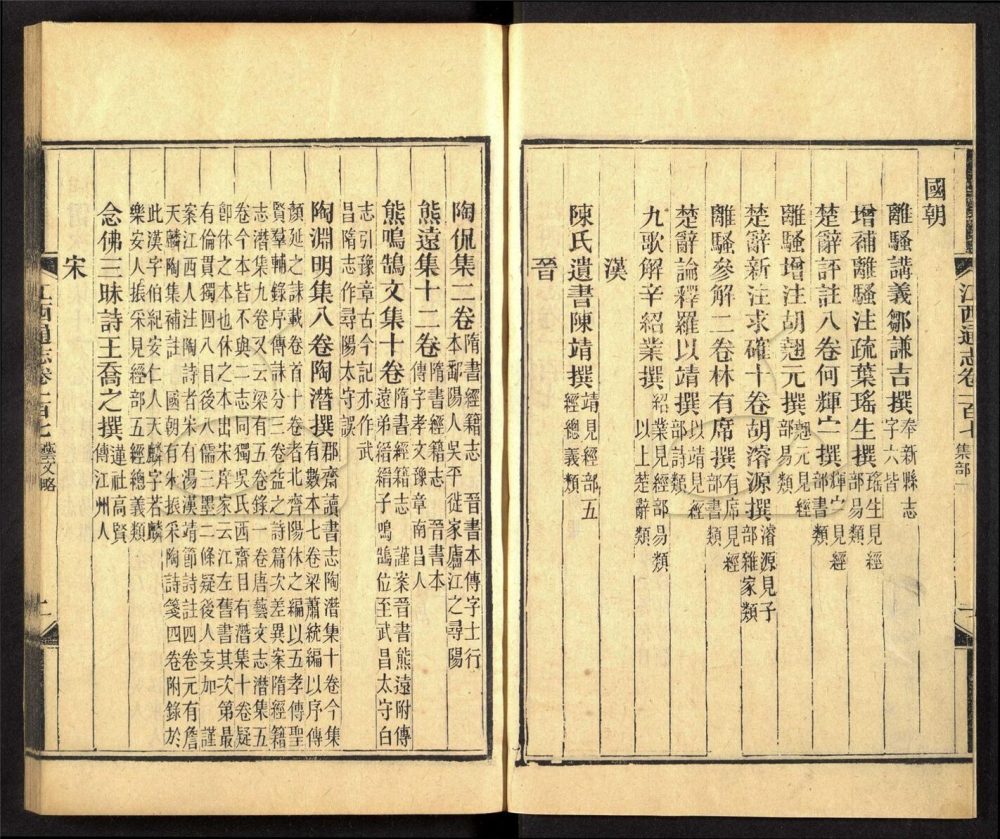 江西通志卷一百七 集部
國朝
離騷講義鄒謙吉撰 奉新縣志
字六皆
增補離騷注疏葉瑤生撰 瑤生見經
部易類
楚辭評註八卷何輝寧撰 輝寧見經
部書類
離騷增注胡翹元撰 翹元見經
部易類
楚辭新注求確十卷胡濬源撰 濬源見子
部雜家類
離騷參解二卷林有席撰 有席見經
部書類
楚辭論釋羅以靖撰 以靖見經
部詩類
九歌解辛紹業撰 紹業見經部易類
以上楚辭類
漢
陳氏遺書陳靖撰 靖見經部五
經總義類
晉
陶侃集二卷 隋書經籍志 晉書本傳字士行
本鄱陽人吳平徙家廬江之尋陽
熊遠集十二卷 隋書經籍志 晉書本
傳字孝文豫章南昌人
熊鳴鵠文集十卷 隋書經籍志 謹案晉書熊遠附傳
遠弟縉縉子鳴鵠位至武昌太守白
志引豫章古今記亦作武
昌隋志作尋陽太守誤
陶淵明集八卷陶潛撰 郡齋讀書志陶潛集十卷今集
有數本七卷梁蕭統編以序傳
顏延之誄載卷首十卷者北齊陽休之編以五孝傳聖
賢羣輔錄序傳誄分三卷益之詩篇次差異案隋經籍
志潛集九卷又云梁有五卷錄一卷唐藝文志潛集五
卷今本皆不與二志同獨吳氏西齋目有潛集十卷疑
卽休之本也休之本出宋庠家云江左舊書其次第最
有倫貫獨四八目後八儒三墨二條疑後人妄加 謹
案江西人注陶詩者宋有湯漢靖節詩註四卷元有詹
天麟陶集補註 國朝有朱振采陶詩箋四卷附錄於
此漢字伯紀安仁人天麟字若麟
樂安人振采見經部五經總義類
念佛三昧詩王喬之撰 蓮社高賢
傳江州人
宋
江西通志卷一百七 藝文略 二